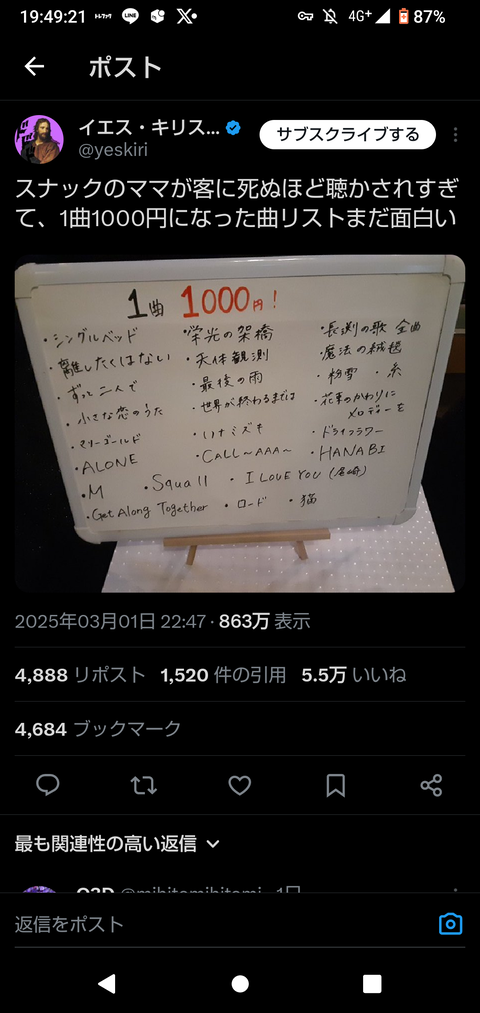 19:49:21
LINE
4G+
87%
ポスト
イエス・キリス...
サブスクライブする
@yeskiri
スナックのママが客に死ぬほど聴かされすぎ
て、1曲1000円になった曲リストまだ面白い
1曲 1000円!
・シングルベッド
・離したくはない
・ずっと二人で
・小さな恋のうた
・マリーゴールド
・ALONE
・栄光の架橋
・天体観測
・最後の雨
・世界が終わるまでは
・ハナミズキ
・CALL~AAA~
・長渕の歌 全曲
・魔法の絨毯
・粉雪 ・糸
・花束のかわりに
メロディーを
・ドライフラワー
・HANABI
・M ・Squall ・I LOVE YOU (尾崎)
・Get Along Together ・ロード ・猫
2025年03月01日 22:47・863万 表示
4,888 リポスト 1,520 件の引用 5.5万 いいね
4,684 ブックマーク
最も関連性の高い返信
返信をポスト